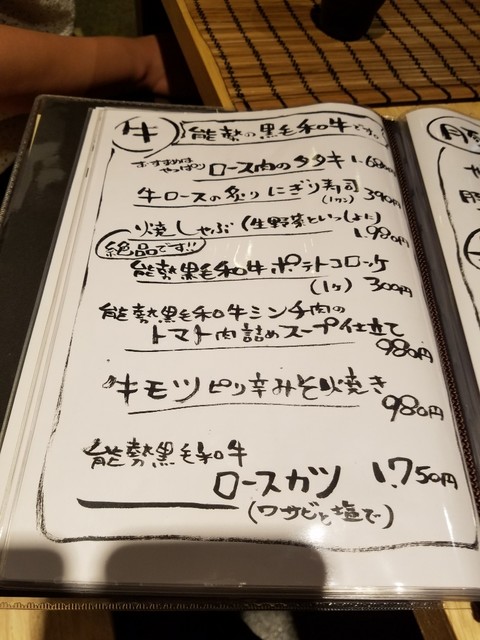 牛 能勢の黒毛和牛です。
おすすめは
やっぱり ロース肉のタタキ 1,680円
牛ロースの炙りにぎり寿司
(1カン) 390円
火焼しゃぶ (生野菜といっしょに)
1,980円
絶品です!!
能勢黒毛和牛ポテトコロッケ
(1ヶ) 300円
能勢黒毛和牛ミンチ肉の
トマト肉詰めスープ仕立て
980円
牛モツピリ辛みそ火焼き
980円
能勢黒毛和牛
ロースカツ 1,750円
(ワサビと塩で)
豚